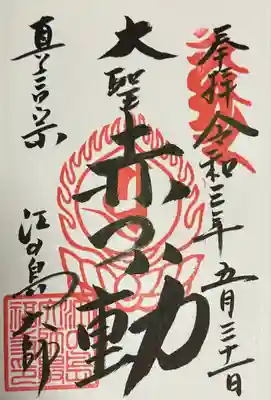 奉拝令和三年五月三十一日
大聖
赤不動
真言宗
江の島大師